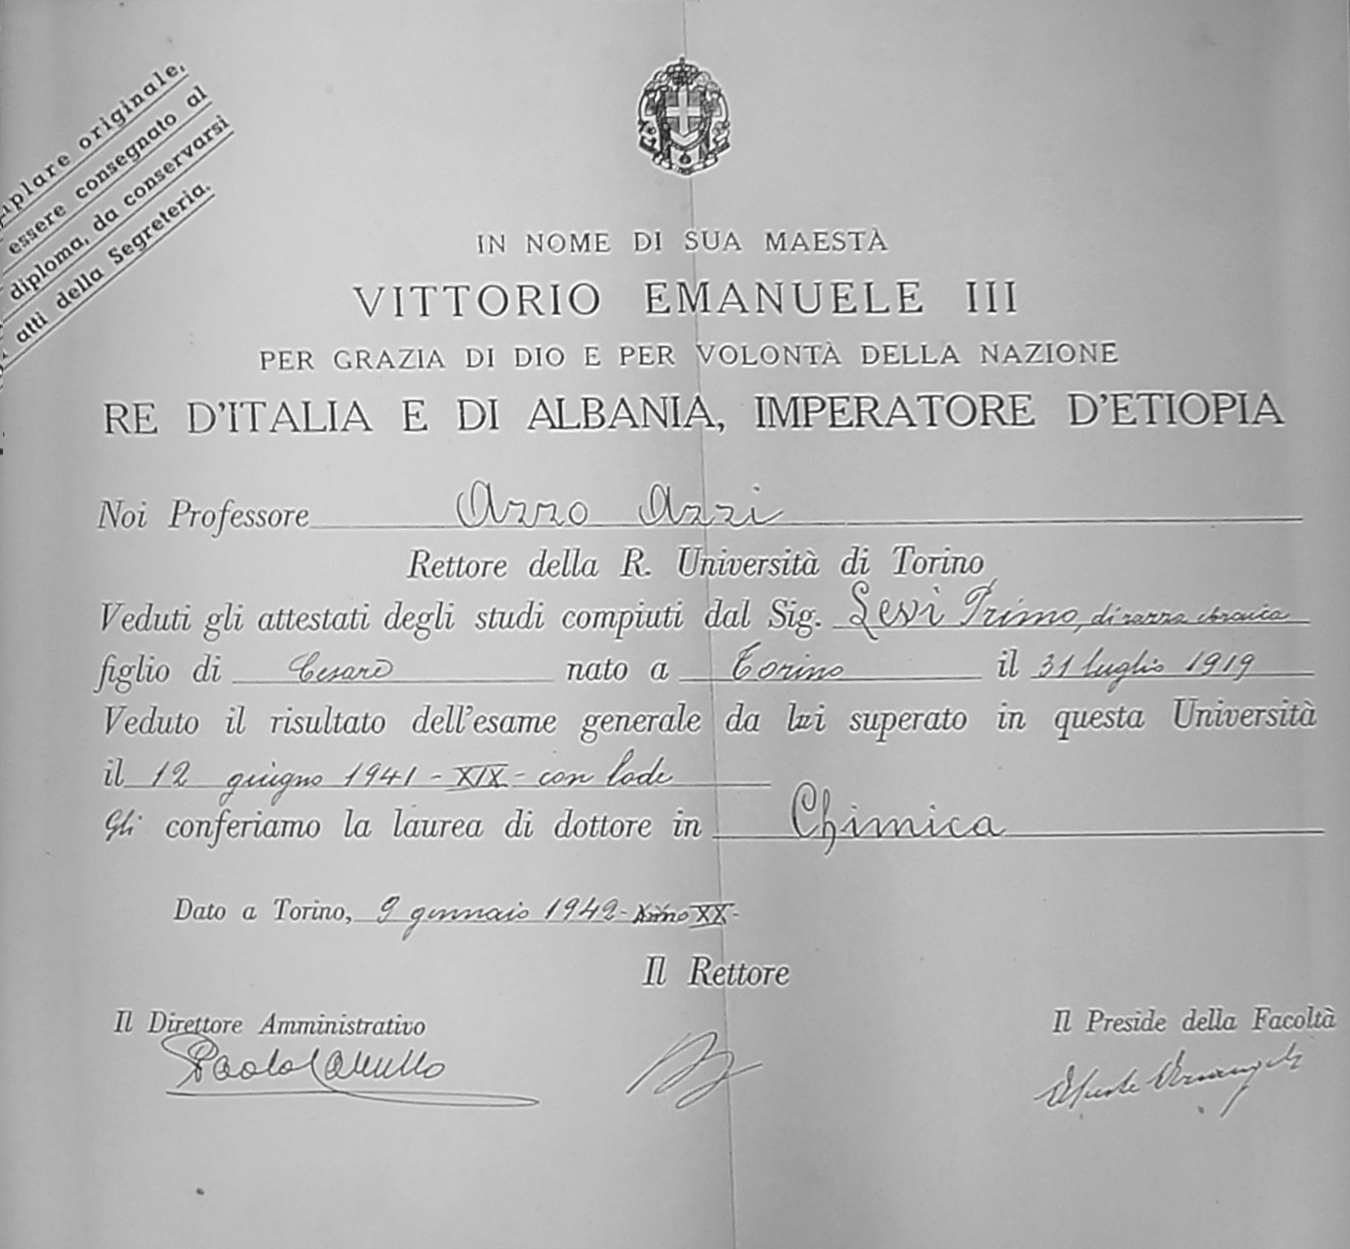 plare originale,
essere consegnato al
diploma, da conservarsi
atti della Segreteria.
IN NOME DI SUA MAESTÀ
VITTORIO EMANUELE III
PER GRAZIA DI DIO E PER VOLONTÀ DELLA NAZIONE
RE D'ITALIA E DI ALBANIA, IMPERATORE D'ETIOPIA
Noi Professore Azzo Azzi
Rettore della R. Università di Torino
Veduti gli attestati degli studi compiuti dal Sig. Levi Primo, di razza ebraica
figlio di Cesare nato a Torino il 31 luglio 1919
Veduto il risultato dell'esame generale da lui superato in questa Università
il 12 giugno 1941 - XIX - con lode
Gli conferiamo la laurea di dottore in Chimica
Dato a Torino, 9 gennaio 1942 - Anno XX -
Il Rettore
Il Direttore Amministrativo
Il Preside della Facoltà
Paolo